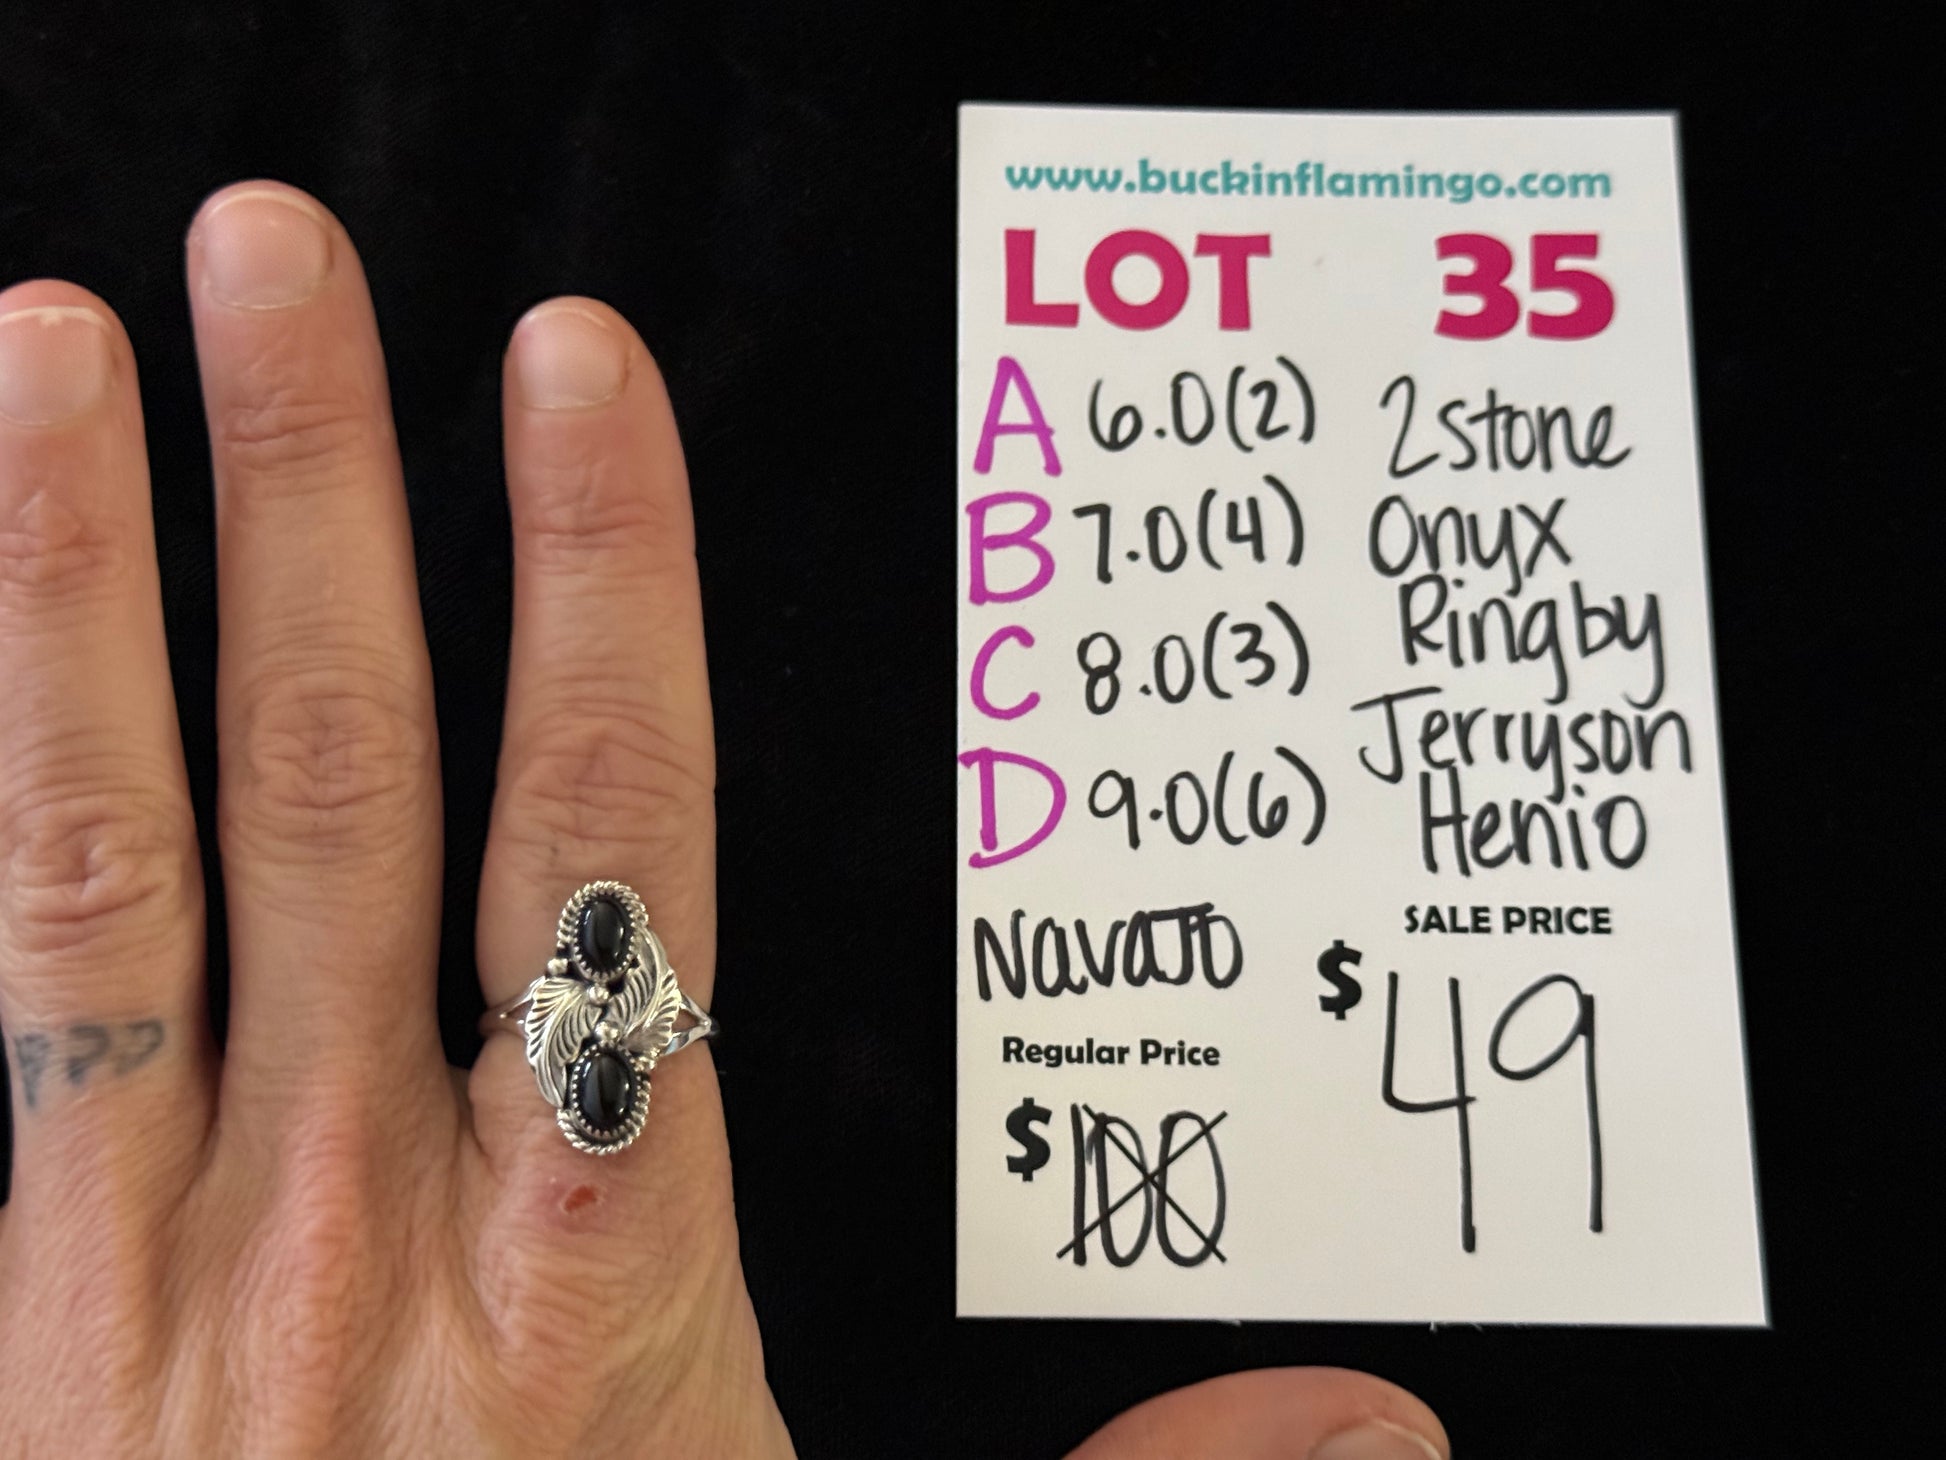 www.buckinflamingo.com
LOT 35
A 6.0(2)
B 7.0(4)
C 8.0(3)
D 9.0(6)
2 stone
Onyx
Ring by
Jerryson
Henio
Navajo
Regular Price
$100
SALE PRICE
$49